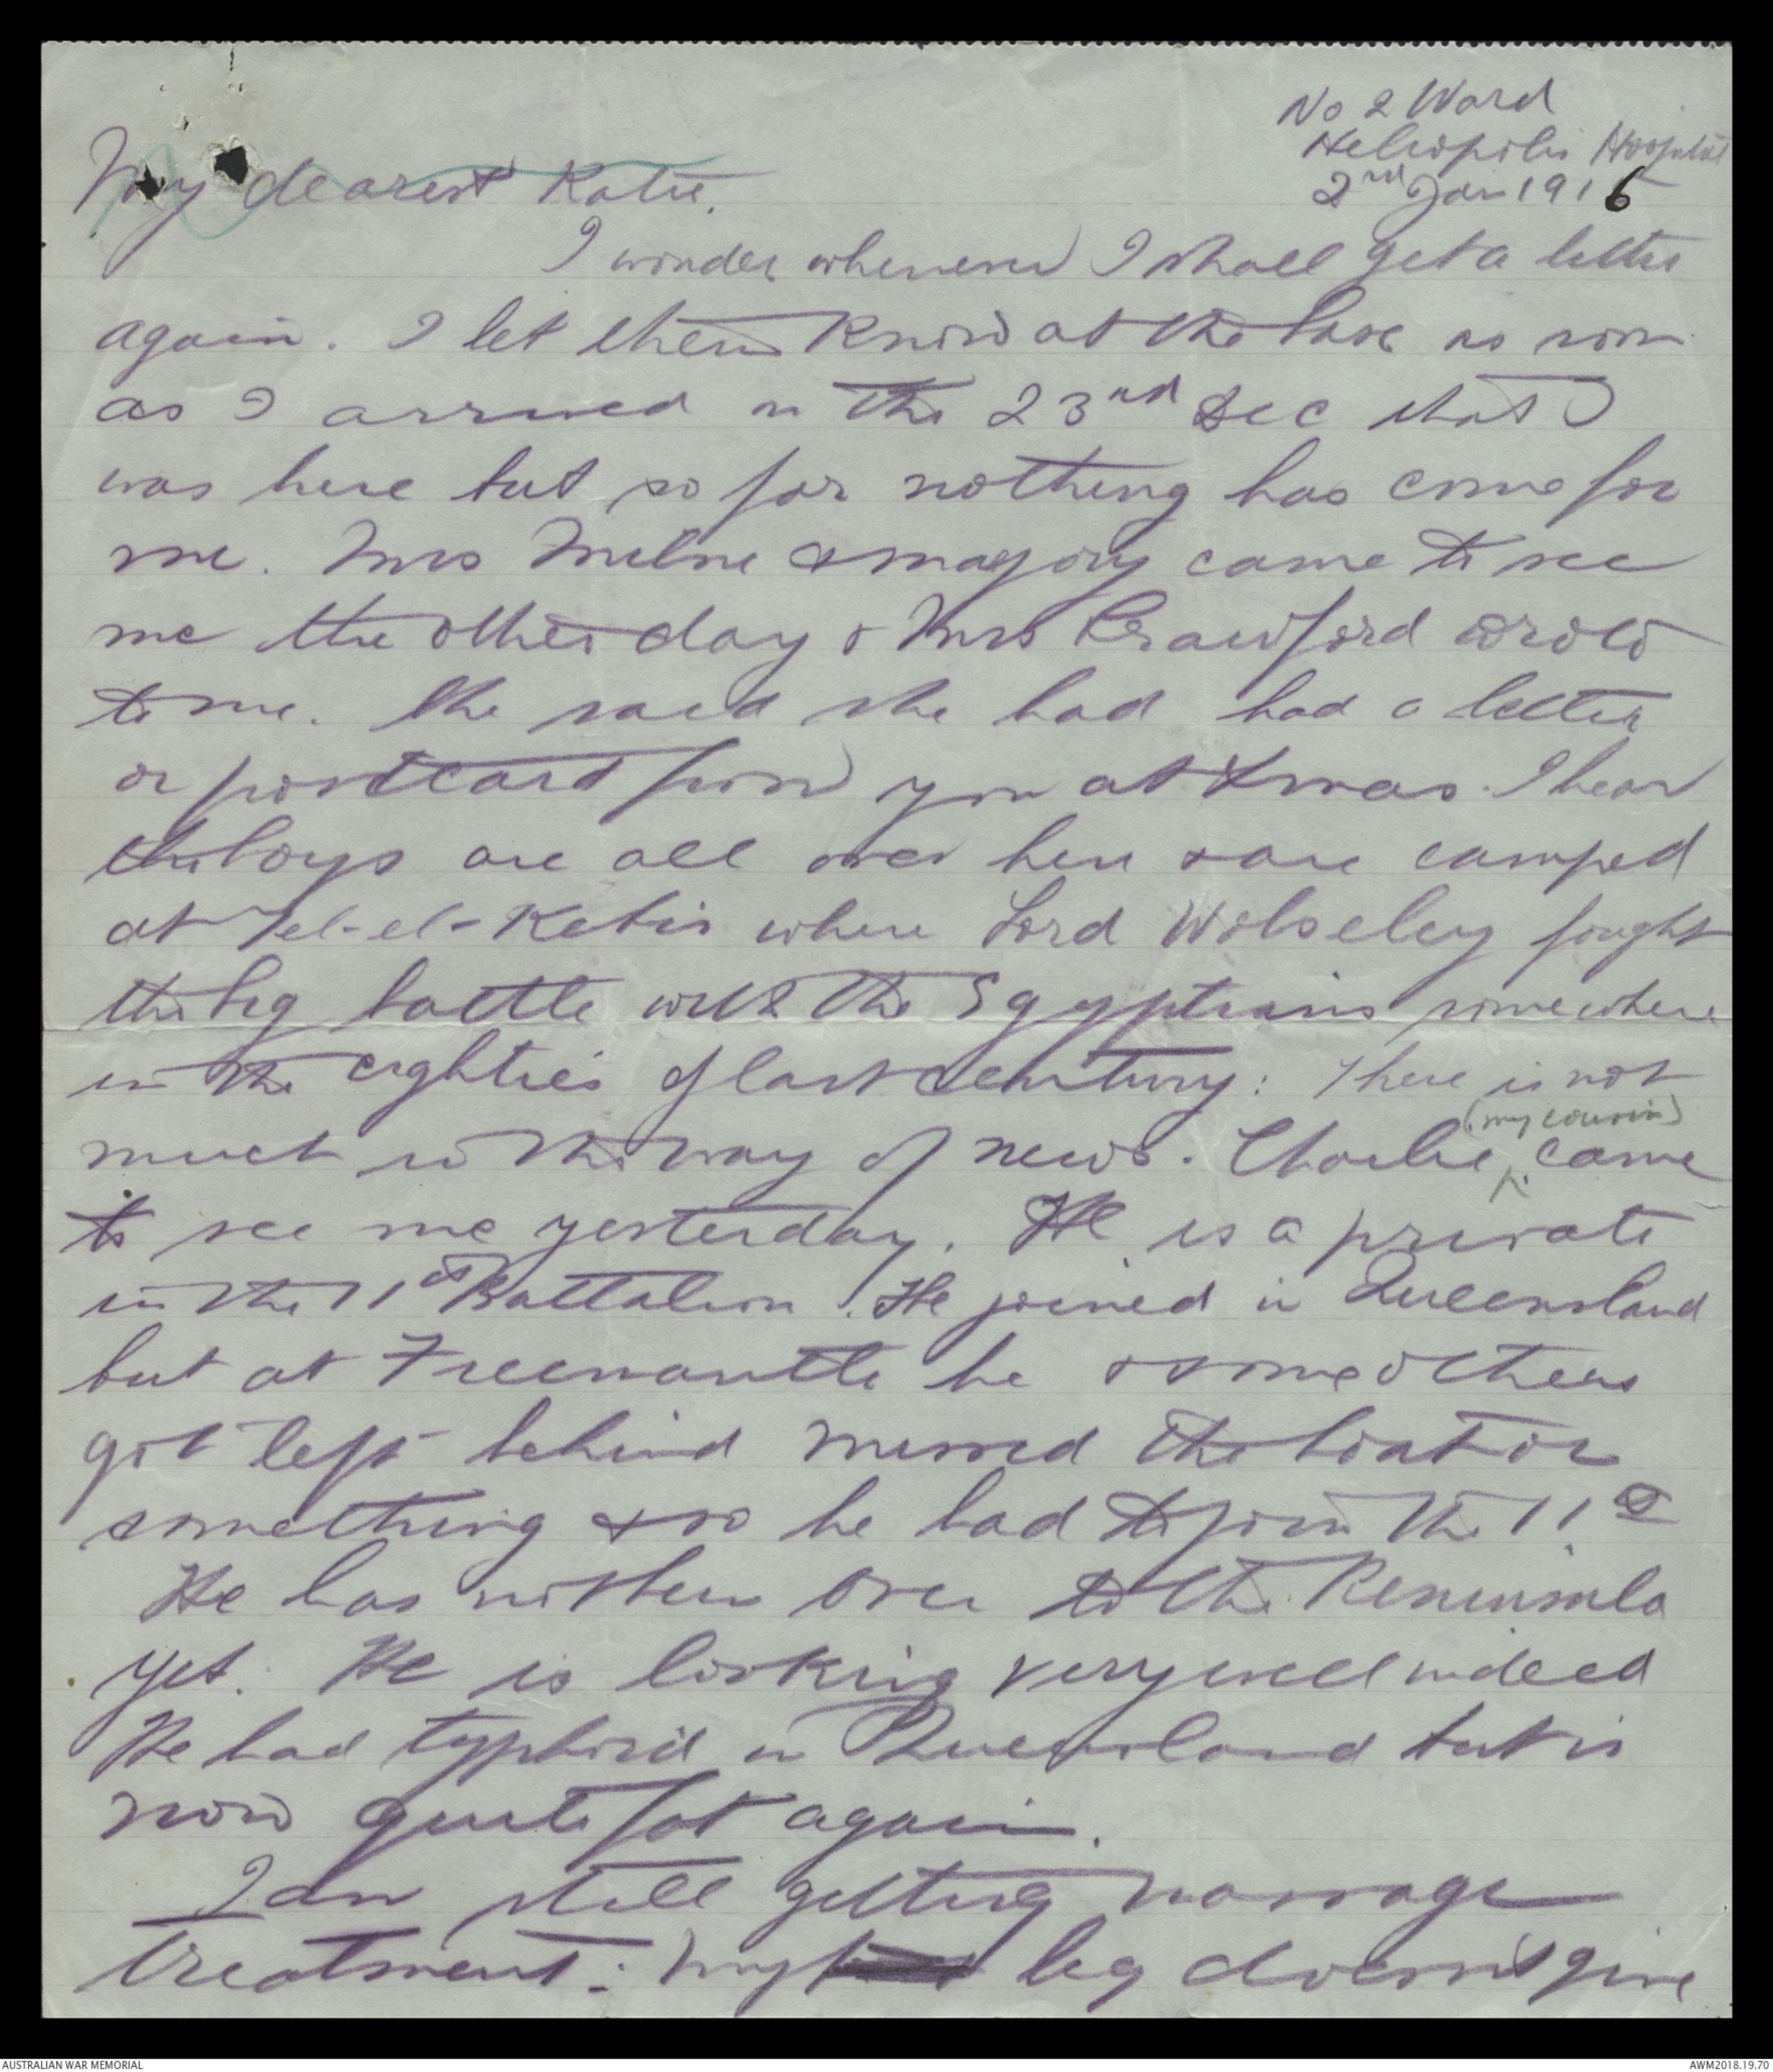 No 2 Ward
Heliopolis Hospital
2nd Jan 1916
My dearest Katie.
I wonder whenever I shall get a letter
again. I let them know at the base as soon
as I arrived on the 23rd Dec that I
was here but so far nothing has come for
me. Mrs Milne & Majory came to see
me the other day & Mrs Crawford wrote
to me. She said she had had a letter
or postcard from you at Xmas. I hear
the boys are all over here & are camped
at Tel-el-Kebir where Lord Wolseley fought
the big battle with the Egyptians somewhere
in the eighties of last century: There is not
(my cousin)
much in the way of news. Charlie, came
to see me yesterday. He is a private
in the 11th Battalion. He joined in Queensland
but at Freemantle he & some others
got left behind missed the boat or
something & so he had to join the 11th
He has not been over to the Peninsula
yet. He is looking very well indeed
He had typhoid in Queensland but is
now quite fat again.
I am still getting massage
treatment: My leg doesn't give
AUSTRALIAN WAR MEMORIAL
AWM2018.19.70